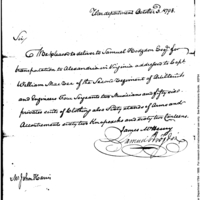 War department October 2d 1798.
Sir,
Be pleased to deliver to Samuel Hodgdon Esqr. for
transportation to Alexandria in Virginia addressed to Capt
William MacRea of the Second regiment of Artillerists
and Engineers four Sergeants two Musicians and fifty six
privates suits of Clothing also Sixty stands of arms and
Accoutrements sixty two Knapsacks and sixty two Canteens.
James McHenry
Samuel Hodgdon
Mr John Harris